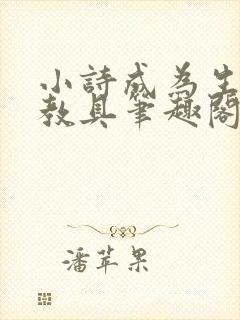 小詩成為生
教具筆趣閣
潘苹果